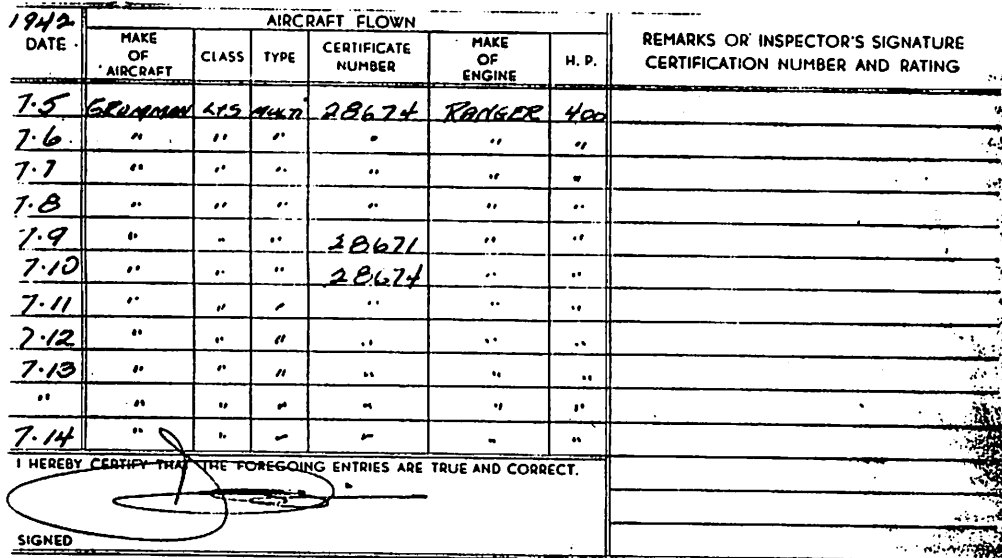 1942 AIRCRAFT FLOWN
DATE MAKE OF AIRCRAFT CLASS TYPE CERTIFICATE NUMBER MAKE OF ENGINE H. P. REMARKS OR INSPECTOR'S SIGNATURE CERTIFICATION NUMBER AND RATING
7.5 GRUMMAN L+S MULTI 28674 RANGER 400
7.6 " " " " " "
7.7 " " " " " "
7.8 " " " " " "
7.9 " " " 28671 " "
7.10 " " " 28674 " "
7.11 " " " " " "
7.12 " " " " " "
7.13 " " " " " "
" " " " " " "
7.14 " " " " " "
I HEREBY CERTIFY THAT THE FOREGOING ENTRIES ARE TRUE AND CORRECT.
SIGNED